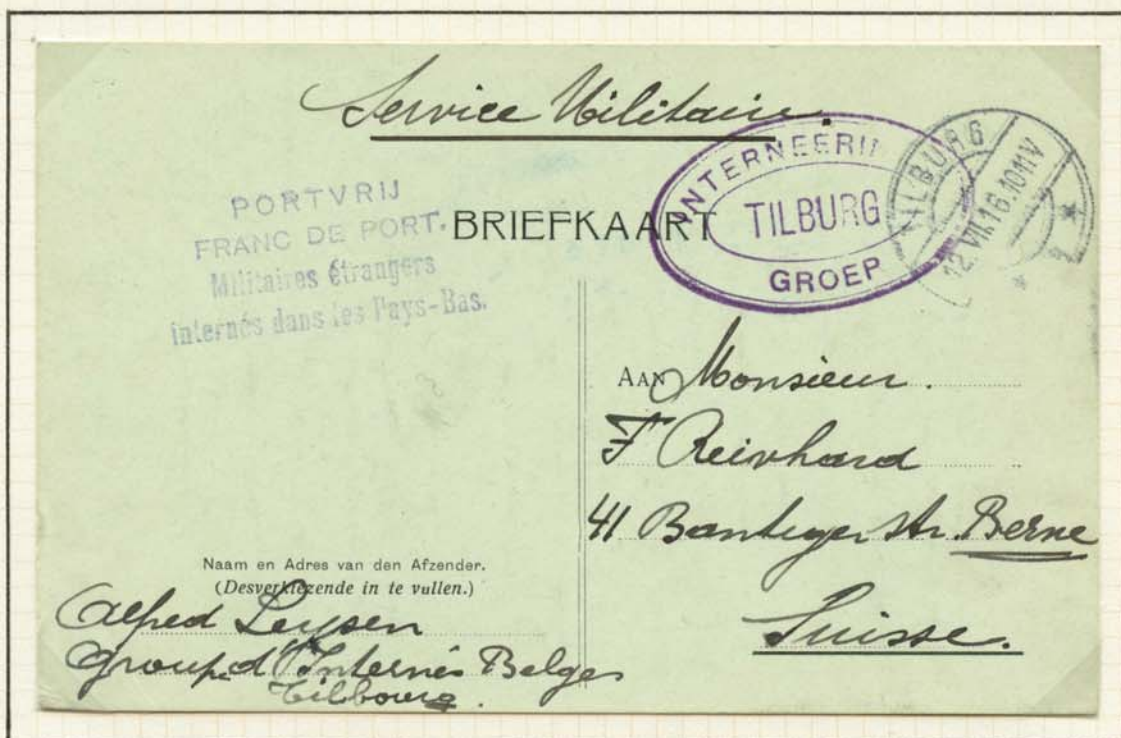 Service Militaire.
PORTVRIJ
FRANC DE PORT.
Militaires étrangers
internés dans les Pays-Bas.
BRIEFKAART
INTERNEERIN
TILBURG
GROEP
TILBURG
12.VII.16.1011V
AAN Monsieur.
F Reinhard
41 Bantiger str. Berne
Suisse.
Naam en Adres van den Afzender.
(Desverkiezende in te vullen.)
Alfred Leysen
Group. d'Internés Belge
Tilbourg.